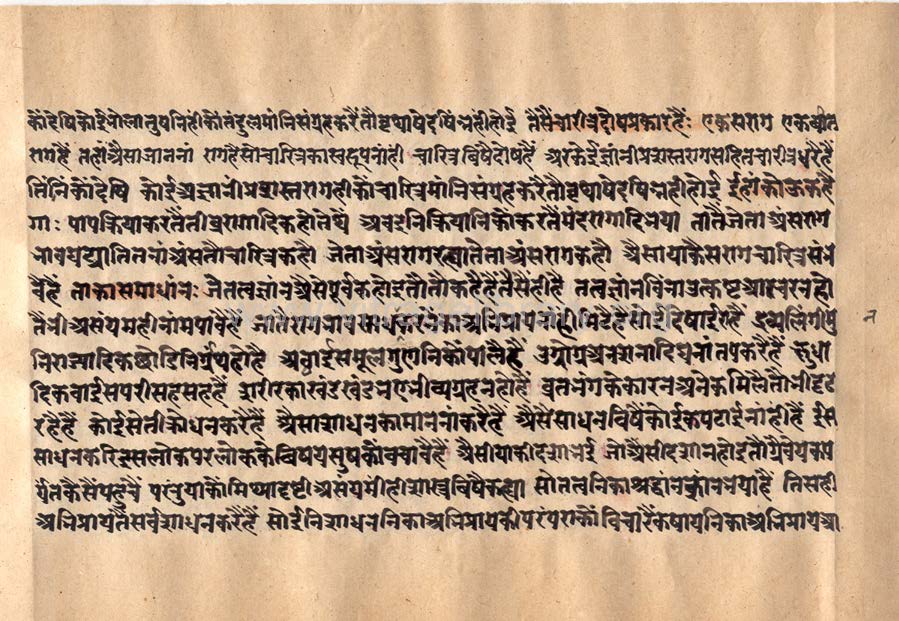 कौं देषि कोई भोला तुषनिही कौं तंदुल मांनि संग्रह करै तौ वृथा षेदषिंन ही होई तैसैं चारीत्र दोय प्रकार है: एक सराग एक वीत
राग है तहां ऐसा जाननां राग है सो चारित्र का स्वरूप नांही चारित्र विषै दोष है अर केई ज्ञांनी प्रशस्त राग सहित चारीत्र धरै हैं
तिंनि कौं देषि कोई अज्ञानी प्रशस्त राग ही कौं चारित्र मांनि संग्रह करै तौ वृथा षेदषिंन ही होई ईहां कोऊ कहै
गा: पाप क्रिया करतैं तीव्र रागादिक होतै थे अब इनि क्रियानि कौं करतैं मंद रागादि भया तातैं जेता अंस राग
भाव घट्या तितनां अंस तौ चारित्र कहौ जेता अंस राग रह्या तेता अंस राग कहौ ऐसा याकै सराग चारित्र संभ
वै है ताका समाधांन: जो तत्वज्ञांन ऐसैं पूर्वक होइ तौ तौ कहै है तैसैं ही है तत्वज्ञांन विनां उत्कृष्ट आचरन हो
तैं भी असंयम ही नांम पावै है जातैं राग भाव करनें का अभिप्राय नांही मिटै है सोई दिषाईए है द्रव्यलिंगी मु
नि राज्यादिक छांडि निर्ग्रंथ हो है अठाईस मूलगुणनि कौं पालै है उग्रोग्र अनशनादि घनां तप करै है क्षुधा
दिक बाईस परीसह सहै है शरीर का खंड खंड भए भी व्यग्र न हो है व्रत भंग के कारन अनेक मिलै तौ भी दृढ
रहै है कोई सेती क्रोध न करै है ऐसा साधन का मान नां करै है ऐसे साधन विषै कोई कपटाई नांही है इस
साधन करि इस लोक परलोक के विषय सुष कौं न चाहै है ऐसी याकी दशा भई जो ऐसी दशा न होइ तौ ग्रैवेयक प
र्यंत कैसैं पहुंचै परंतु याकौं मिथ्यादृष्टी असंयमी ही शास्त्र विषै कह्या सो तत्वनि का श्रद्धांन ज्ञांन न भया है तिसही
अभिप्राय तैं सर्व साधन करै है सोई इनि साधननि का अभिप्राय की परंपरा कौं विचारै कषायनि का अभिप्राय आ